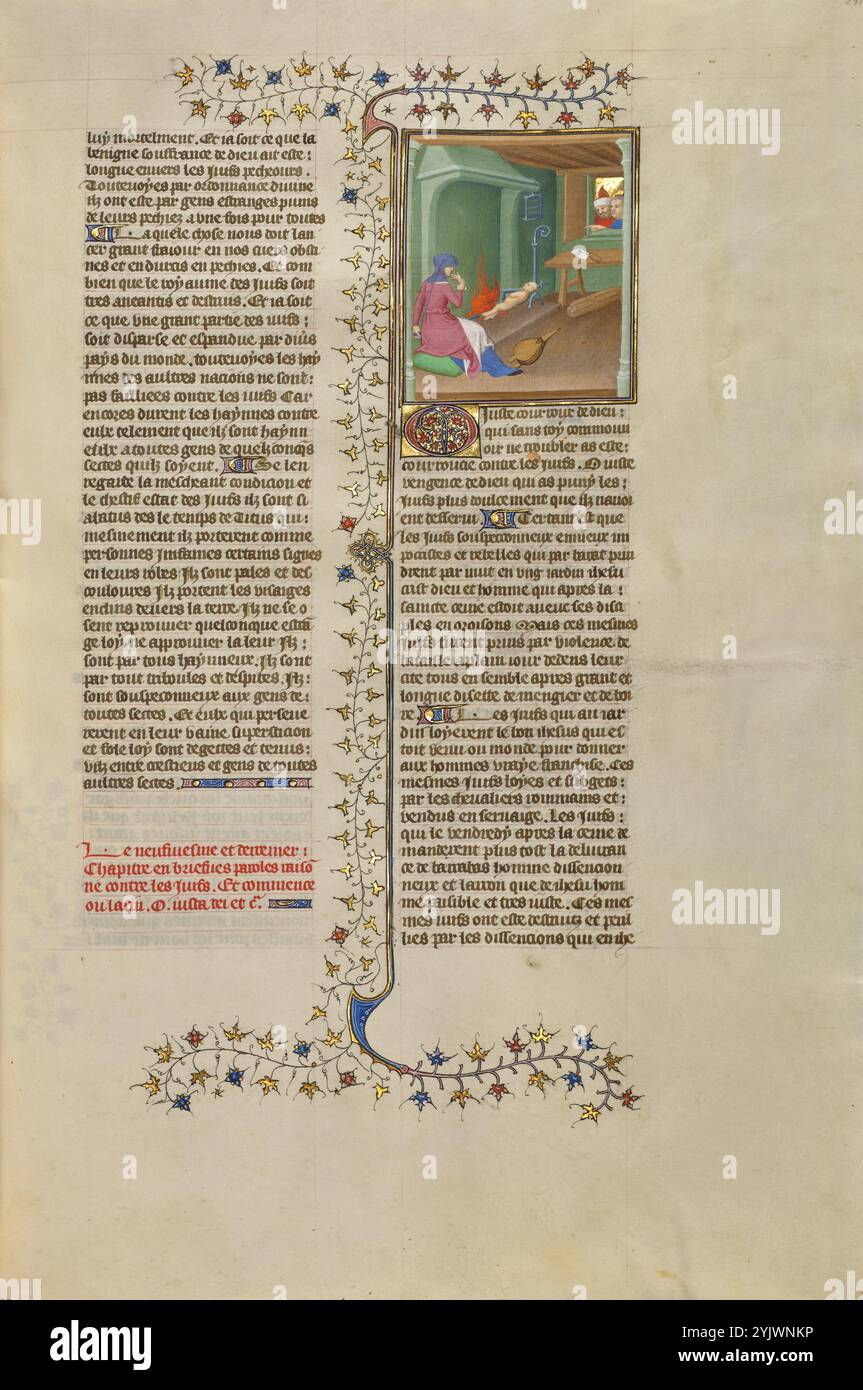 luy mortelment. Et ia soit ce que la
benigne souffrance de dieu ait este:
longue envers les Juifs pecheours.
Toutevoyes par ordonnance divine
ilz ont este par gens estranges punis
de leurs pechiez a une fois pour toutes
La quele chose nous doit lan
cer grant fraiour en nos cuers obsti
nes et endurcis en pechies. Et com
bien que le royaume des Juifs soit
tres aneantis et destruis. Et ia soit
ce que une grant partie des iuifs:
soit disparse et espandue par divers
pays du monde. toutevoyes les hay
nnes des aultres nacions ne sont:
pas faillies contre les iuifs Car
encores durent les haynnes contre
eulx telement que ilz sont haynn
eux a toutes gens de
sectes quilz soyent. Se len
regarde la meschant condicion et
le chestif estat des Juifs ilz sont si
abatus des le temps de Titus. qui:
mesmement ilz porterent comme
personnes infames certains signes
en leurs robes Ilz sont pales et des
coulources Ilz portent les visaiges
enclins devers la terre Ilz ne so
sent reprouver quelconque estra
ge loy ne approuver la leur Ilz:
sont par tous haynneux. Ilz sont
par tout triboules et despites. Ilz:
sont souspeconneux aux gens de:
toutes sectes. Et eulx qui perseve
rerent en leur vaine supersticion
et fole loy sont degectes et tenus:
vilz entre crestiens et gens de toutes
aultres sectes.
Le neufiuesme et derrenier:
Chapitre en briefves paroles raiso
ne contre les Juifs. Et commence
ou latin. O. iusta dei et c.
O Juste courroux de dieu:
qui sans toy commouv
oir ne troubler as este:
courroucie contre les Juifs. O iuste
vengence de dieu qui as puny les:
Juifs plus doulcement que ilz navoi
ent desservi. Certain est que
les Juifs souspeconneux envieux im
pocrites et rebelles qui par barat prin
drent par nuit en ung iardin ihesu
crist dieu et homme qui apres la:
saincte cene estoit avecc ses disci
ples en oroisons Mais ces mesmes
Juifs furent prins par violence de
bataille en plain iour dedens leur
cite tous ensemble apres grant et
longue disette de mengier et de boi
re. Les Juifs qui au iar
din loyerent le bon ihesus qui es
toit venu ou monde pour donner
aux hommes vraye franchise. Ces
mesmes Juifs loyes et subgets:
par les chevaliers rommains et:
vendus en servaige. Les Juifs:
qui le vendredy apres la cene de
manderent plus tost la delivran
ce de barrabas homme dissencion
neux et larron que de ihesu hom
me paisible et tres iuste. Ces mes
mes iuifs ont este destruitz et peril
lies par les dissencions qui en ihe
alamy
Image ID: 2YJWNKP
www.alamy.com